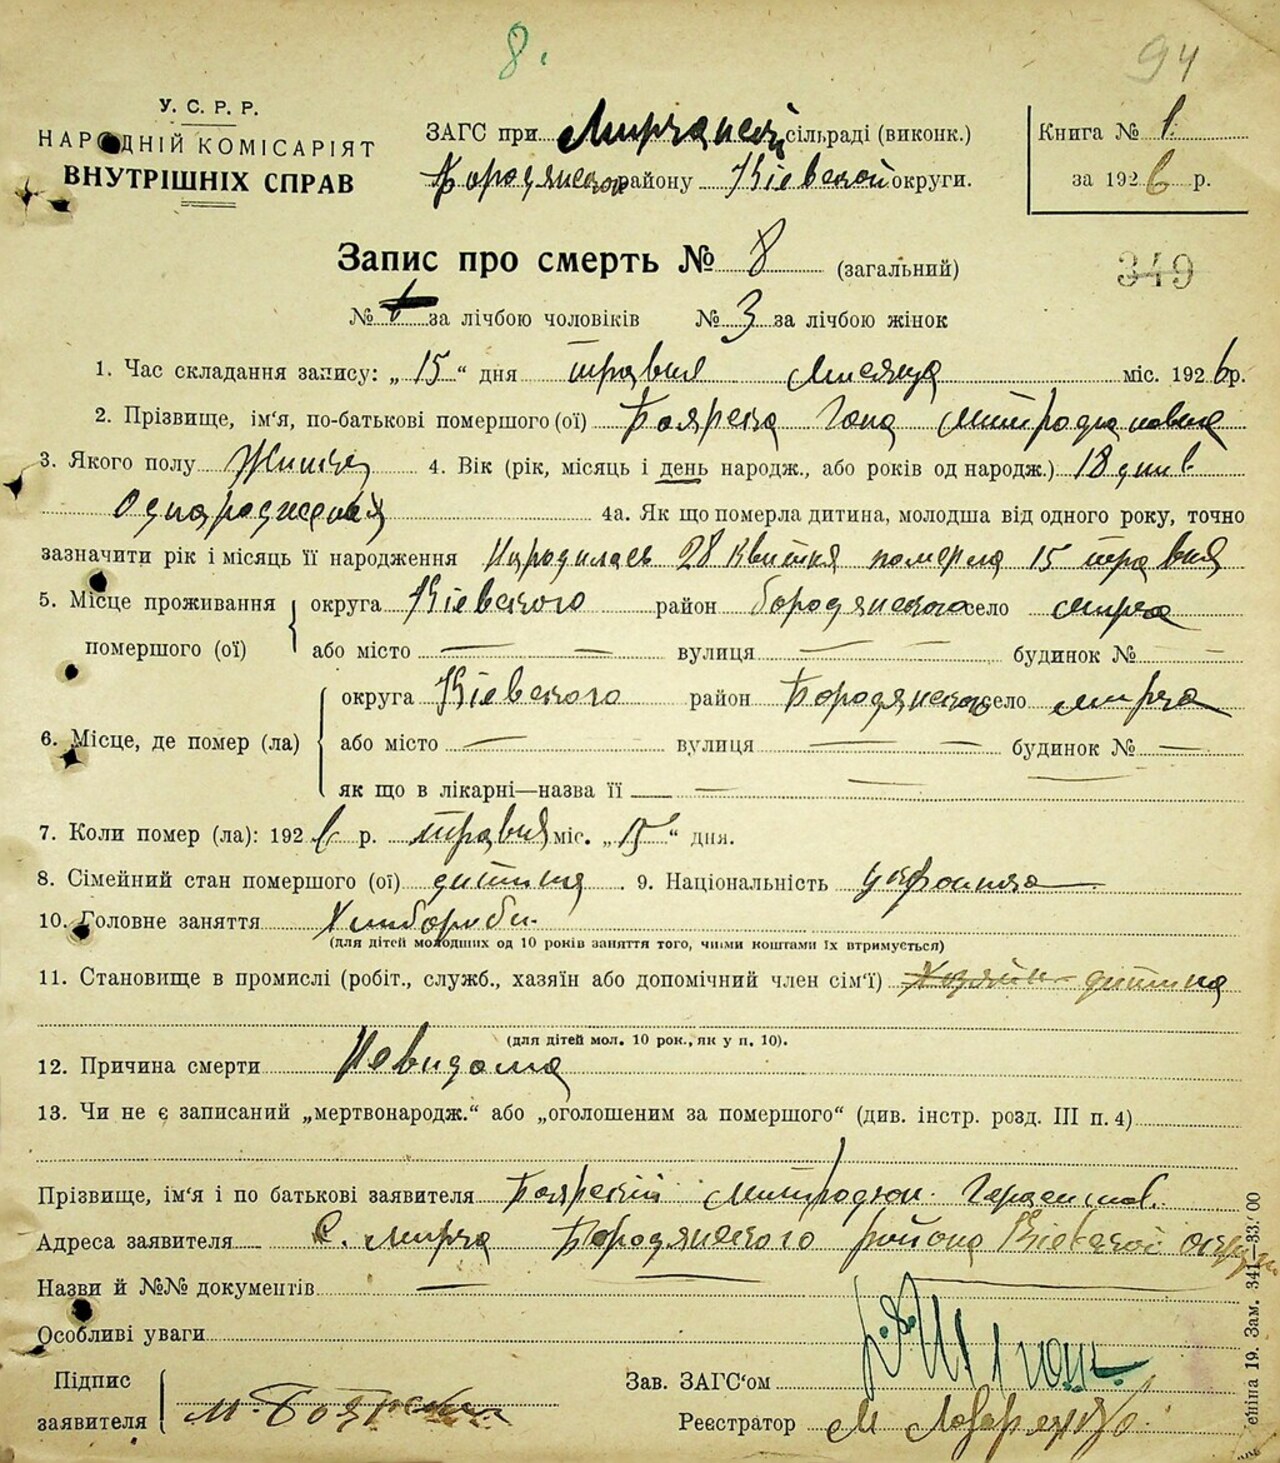 8.
94
У. С. Р. Р.
НАРОДНІЙ КОМІСАРІЯТ
ВНУТРІШНІХ СПРАВ
ЗАГС при Мирчанській сільраді (виконк.)
Бородянского району Кіевской округи.
Книга № 1
за 1926 р.
Запис про смерть № 8 (загальний)
349
№ за лічбою чоловіків № 3 за лічбою жінок
1. Час складання запису: „15“ дня травня мисяця міс. 1926 р.
2. Прізвище, ім‘я, по-батькові помершого (ої) Боярска Гана Митродановна
3. Якого полу Жиноча 4. Вік (рік, місяць і день народж., або років од народж.) 18 днив
Однародження 4а. Як що померла дитина, молодша від одного року, точно
зазначити рік і місяць її народження Народилась 28 Квитня померла 15 травня
5. Місце проживання помершого (ої) округа Кіевского район Бородянского село Мирча
або місто — — вулиця — — будинок № —
6. Місце, де помер (ла) округа Кіевского район Бородянского село Мирча
або місто — вулиця — — будинок № —
як що в лікарні—назва її — — —
7. Коли помер (ла): 1926 р. травня міс. „15“ дня.
8. Сімейний стан помершого (ої) дитина . 9. Національність украінка
10. Головне заняття Хлибороби.
(для дітей молодших од 10 років заняття того, чиїми коштами їх втримується)
11. Становище в промислі (робіт., служб., хазяїн або допомічний член сім‘ї) Хозяїн дитина
(для дітей мол. 10 рок., як у п. 10).
12. Причина смерти Невидома
13. Чи не є записаний „мертвонародж.“ або „оголошеним за помершого“ (див. інстр. розд. III п. 4)
Прізвище, ім‘я і по батькові заявителя Боярский Митродан
Адреса заявителя С. Мирча Бородянского района Кіевской округи
Назви й №№ документів — — —
Особливі уваги
Підпис заявителя М. Боярский
Зав. ЗАГС‘ом
Реєстратор М
19. Зам. 341—33.